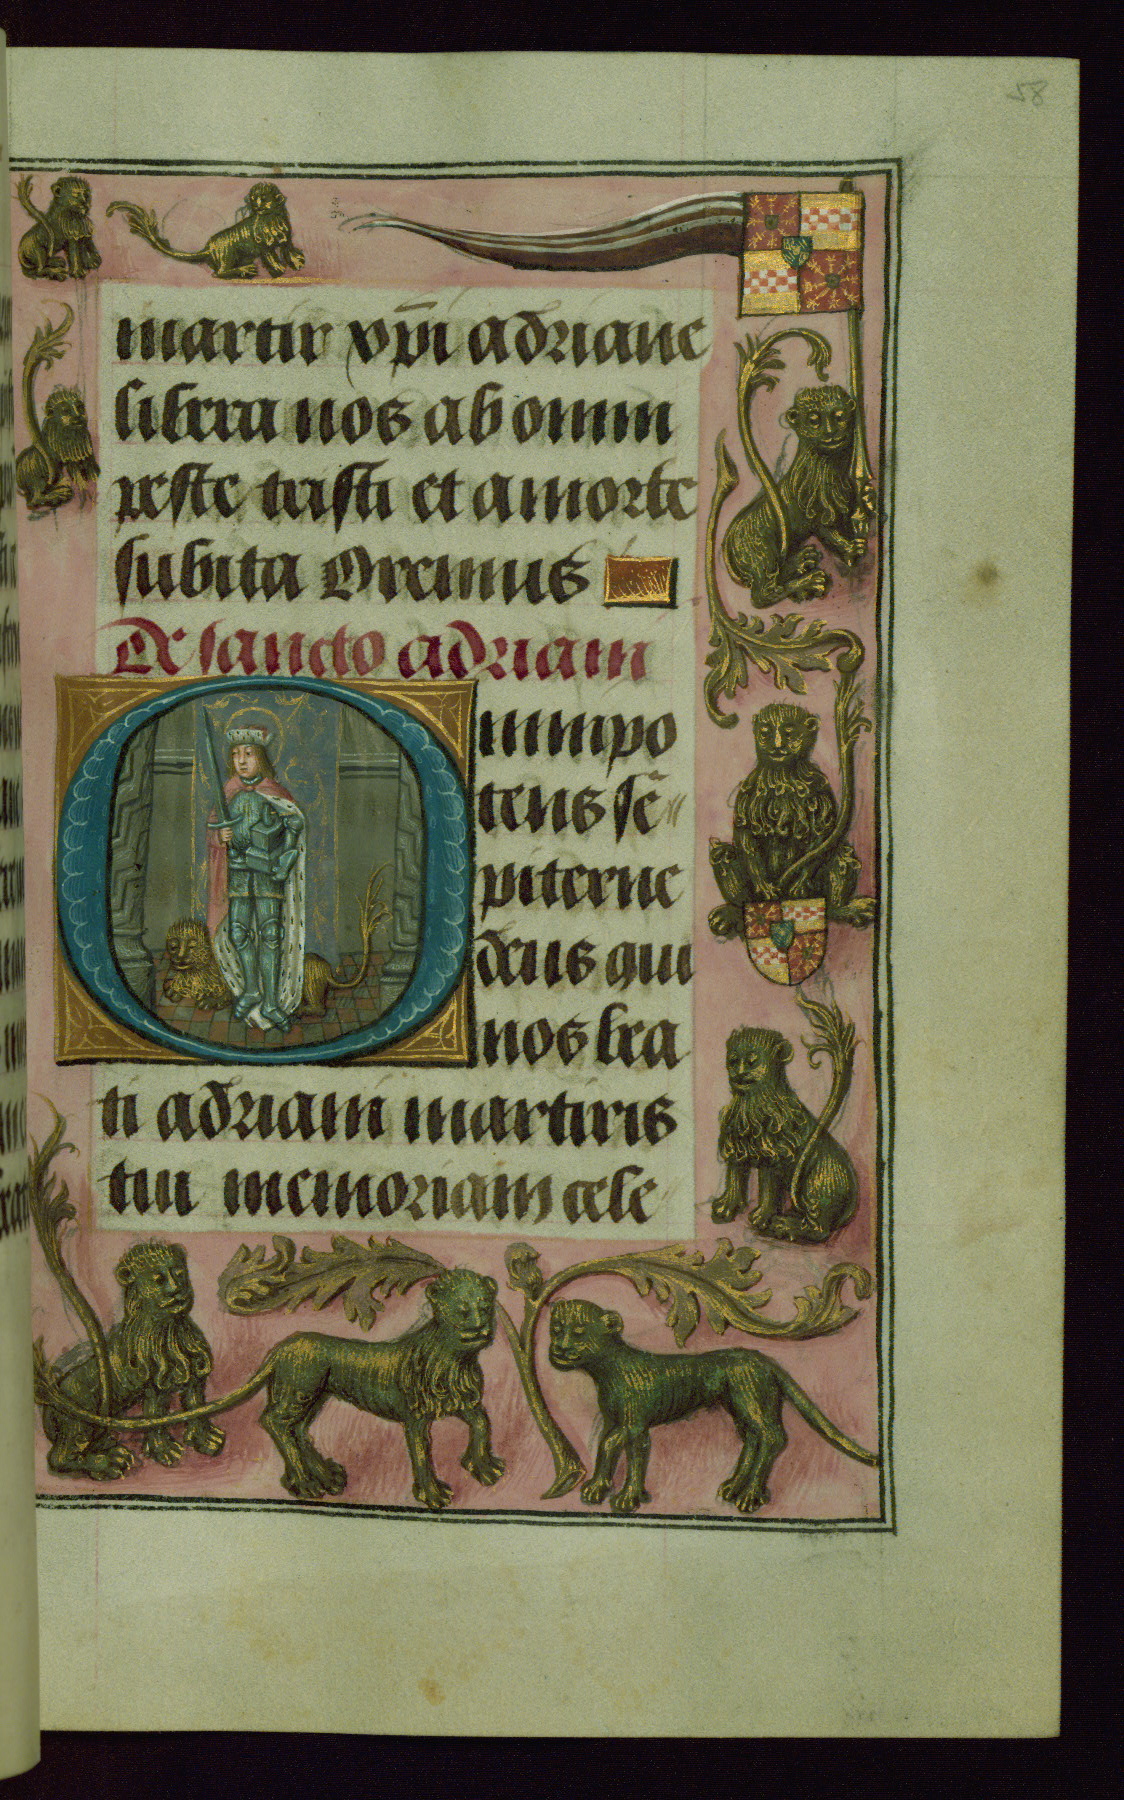 58
martir xp̄i adriane
libera nos ab omni
peste tristi et a morte
subita Oremus
De sancto adriani
mnipo
tens sē
piterne
deus qui
nos bea
ti adriani martiris
tui memoriam cele